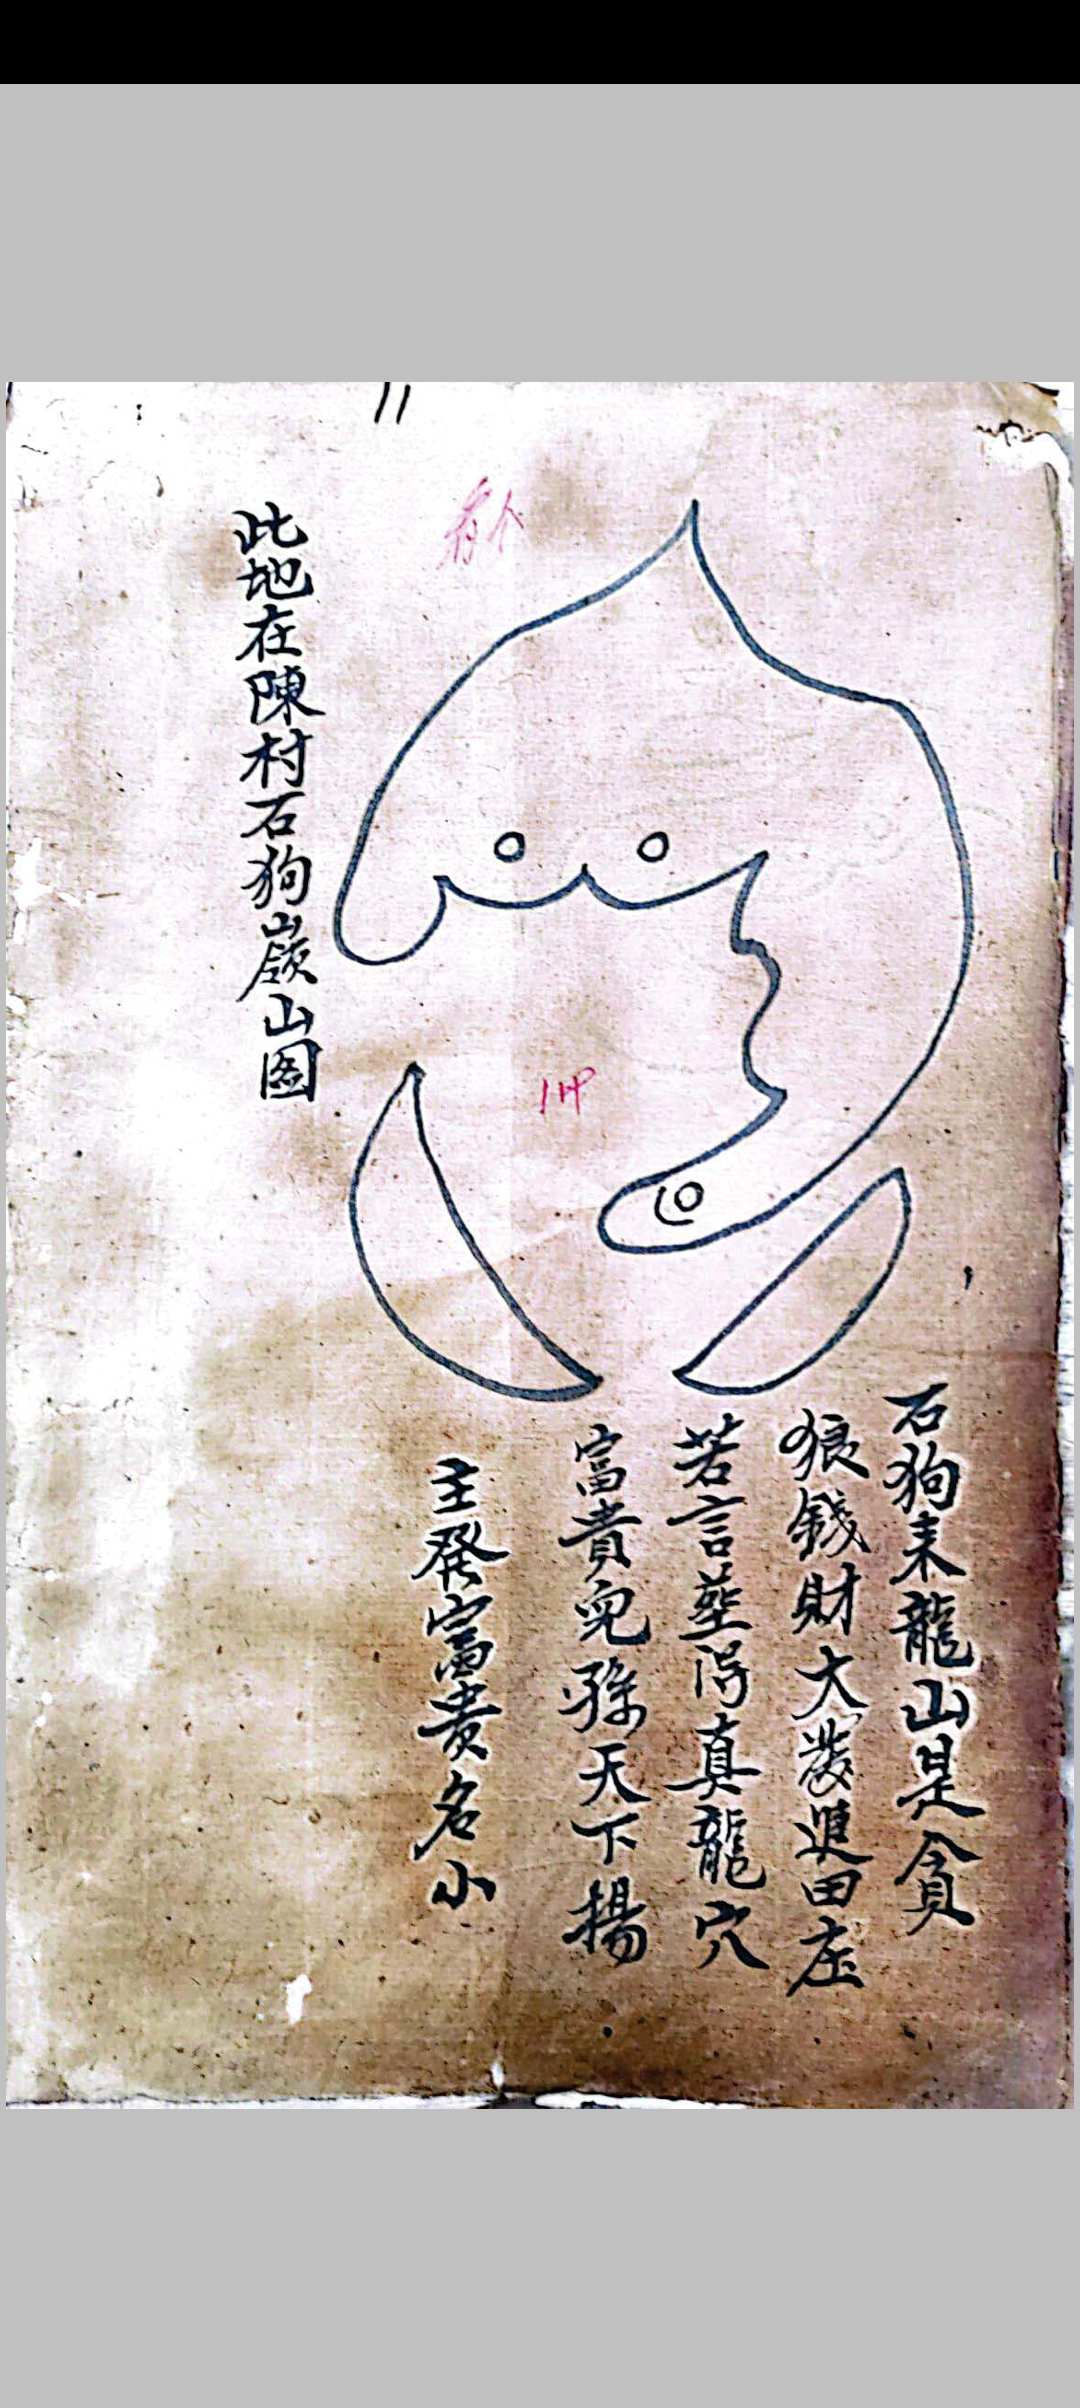 11
石狗来龍山是貪
狼錢財大發進田庄
若言塟得真龍穴
富貴兒孫天下揚
主發富貴名小
此地在陳村石狗嶺山圖